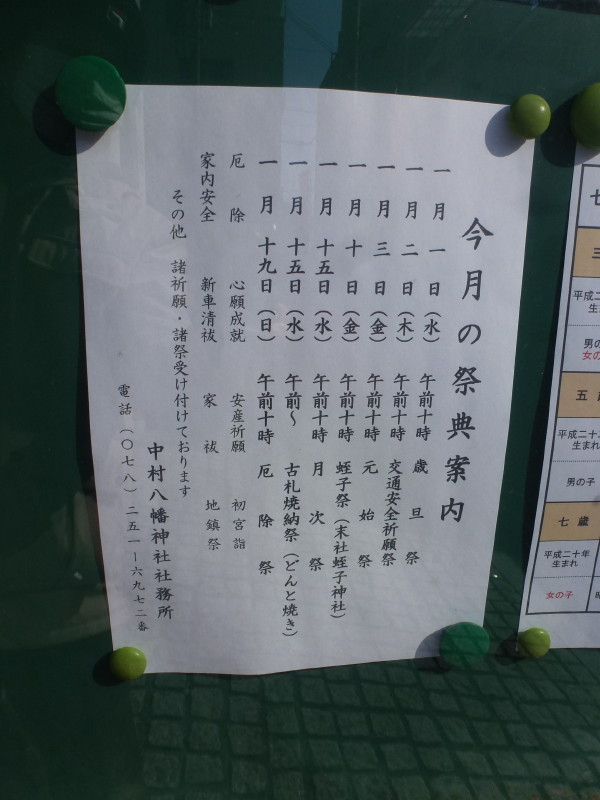 今月の祭典案内
一月一日（水） 午前十時 歳旦祭
一月二日（木） 午前十時 交通安全祈願祭
一月三日（金） 午前十時 元始祭
一月十日（金） 午前十時 蛭子祭（末社蛭子神社）
一月十五日（水） 午前十時 月次祭
一月十五日（水） 午前～ 古札焼納祭（どんと焼き）
一月十九日（日） 午前十時 厄除祭
厄除 心願成就 安産祈願 初宮詣
家内安全 新車清祓 家祓 地鎮祭
その他 諸祈願・諸祭受け付けております
中村八幡神社社務所
電話（〇七八）二五一ー六九七二番
七
三
平成二
生ま
男の
女の
五
平成二十
生まれ
男の子
七歳
平成二十年
生まれ
女の子